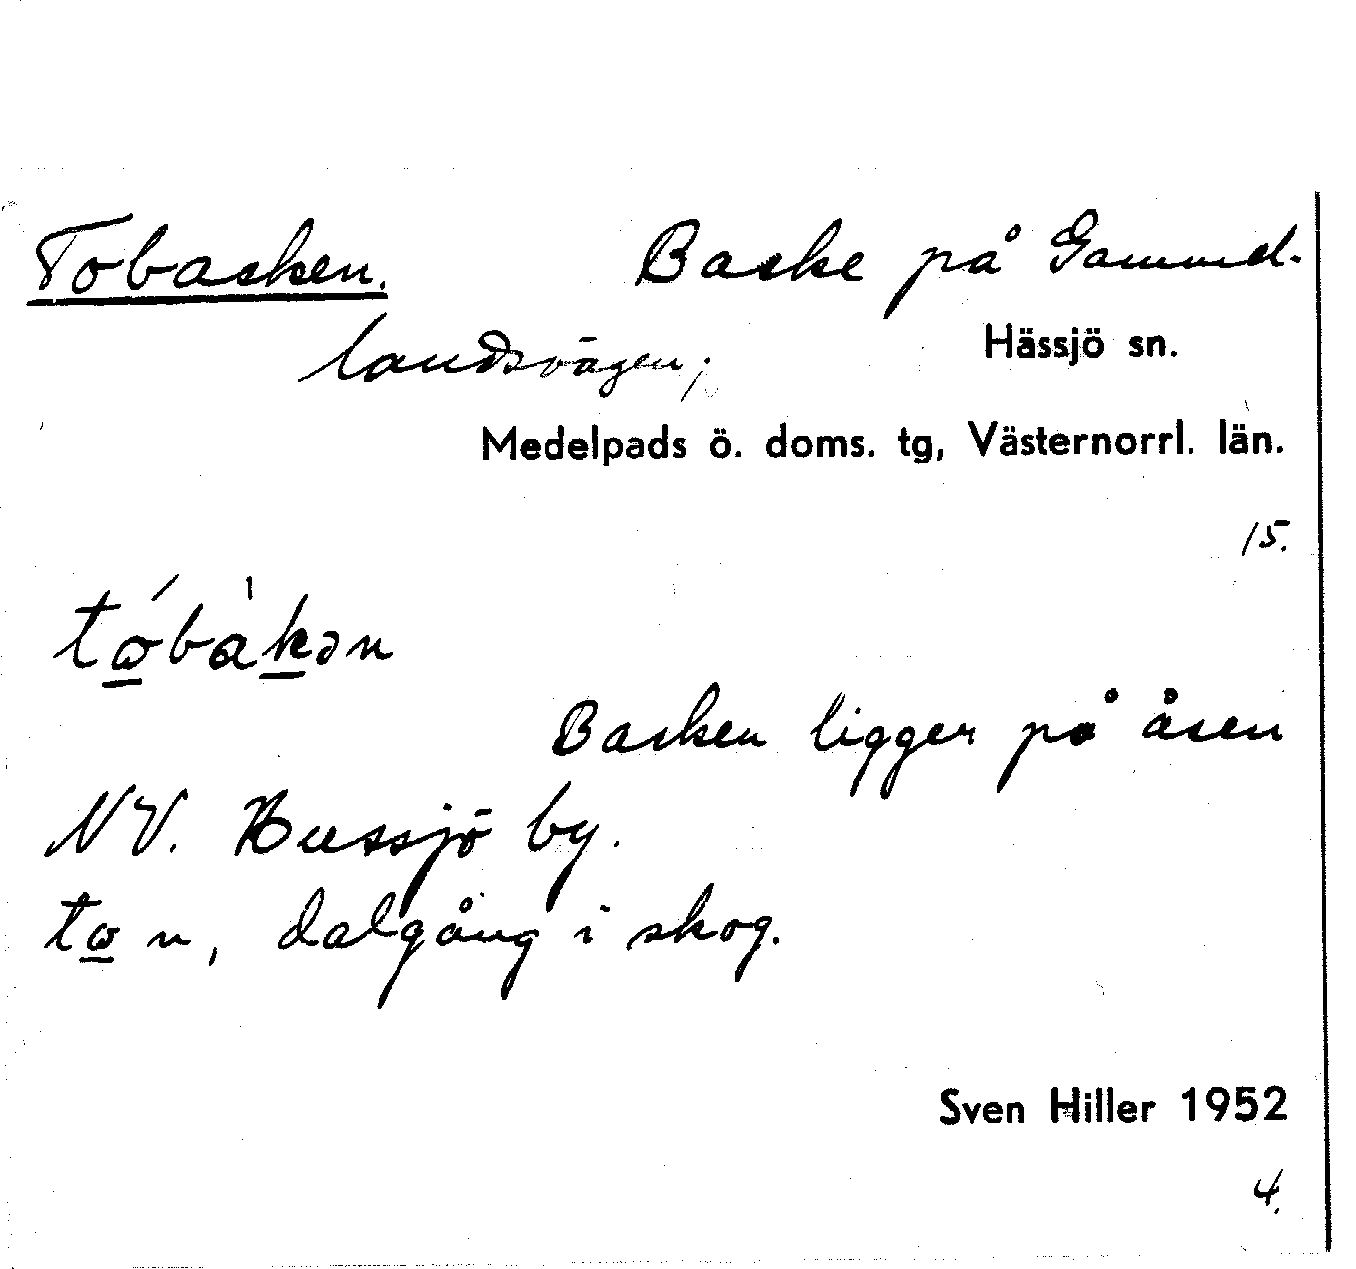 Tobacken. Backe på Gammel-
landsvägen;
Hässjö sn.
Medelpads ö. doms. tg, Västernorrl. län.
15.
tɷ́bàkən
Backen ligger på åsen
NV. Hussjö by.
tɷ n, dalgång i skog.
Sven Hiller 1952
4.